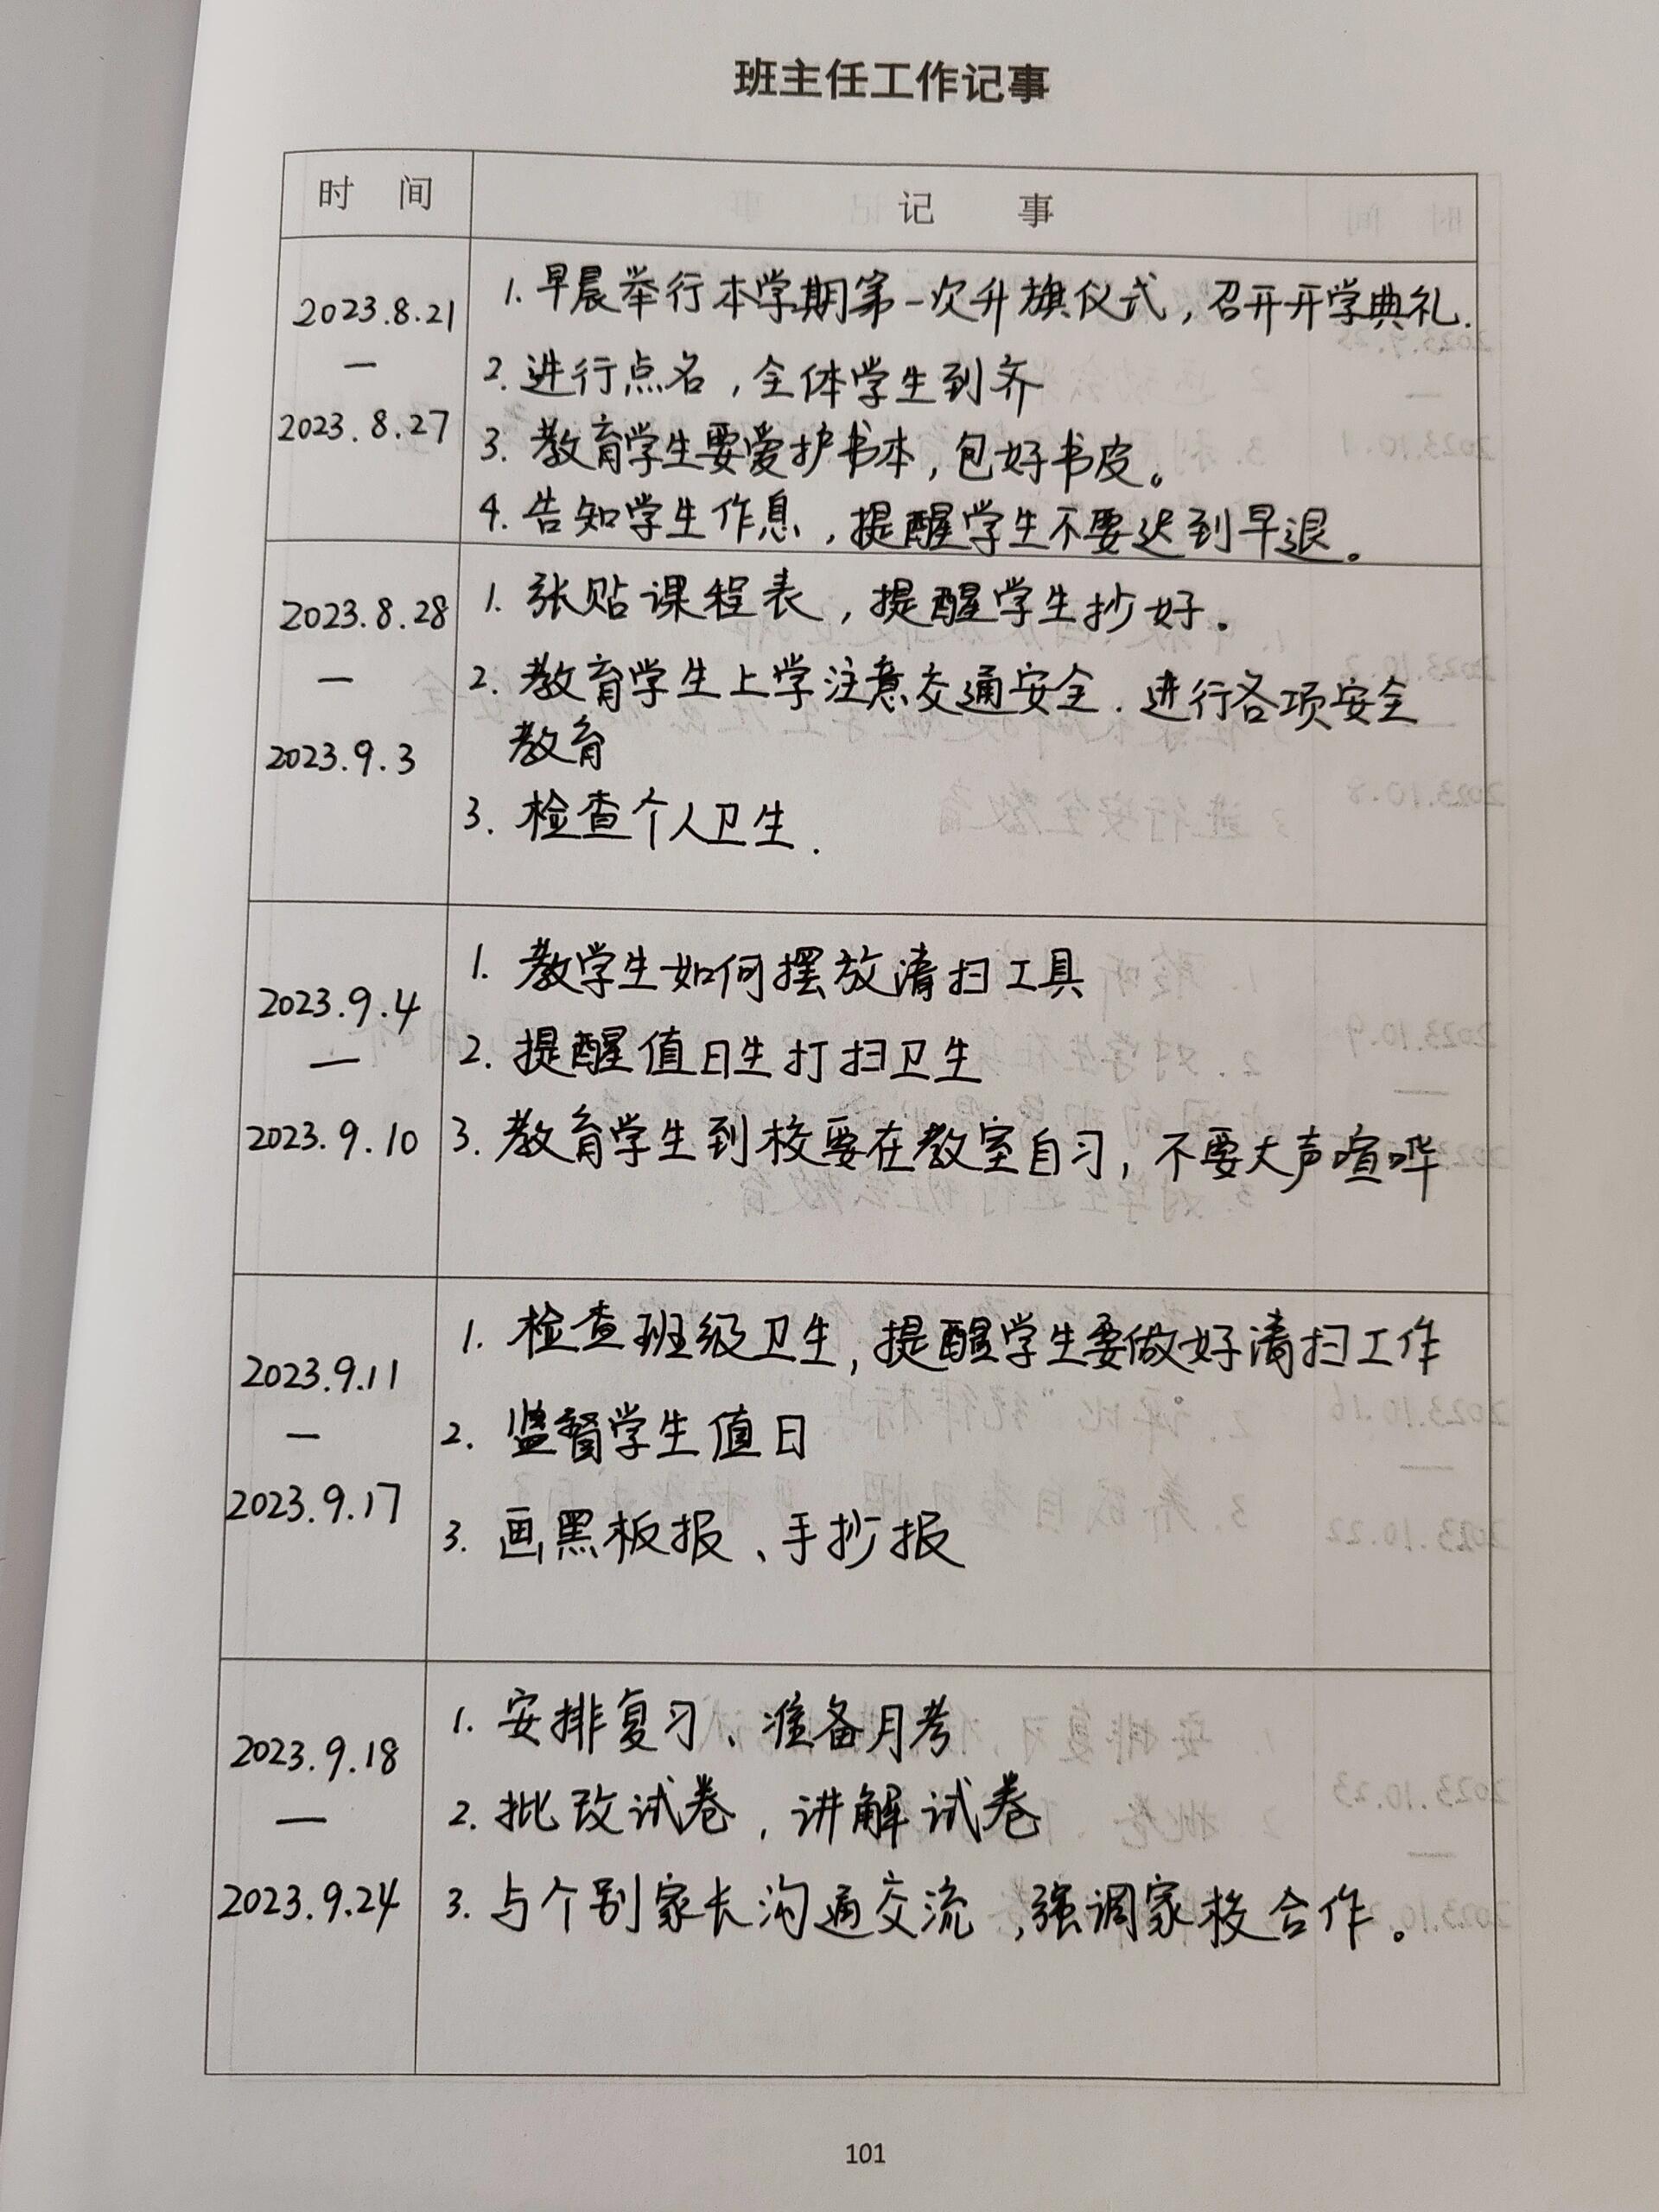 班主任工作记事
时 间 记 事
2023.8.21
—
2023.8.27
1. 早晨举行本学期第一次升旗仪式，召开开学典礼.
2. 进行点名，全体学生到齐
3. 教育学生要爱护书本，包好书皮。
4. 告知学生作息，提醒学生不要迟到早退。
2023.8.28
—
2023.9.3
1. 张贴课程表，提醒学生抄好.
2. 教育学生上学注意交通安全. 进行各项安全
教育
3. 检查个人卫生.
2023.9.4
—
2023.9.10
1. 教学生如何摆放清扫工具
2. 提醒值日生打扫卫生
3. 教育学生到校要在教室自习，不要大声喧哗
2023.9.11
—
2023.9.17
1. 检查班级卫生，提醒学生要做好清扫工作
2. 监督学生值日
3. 画黑板报、手抄报
2023.9.18
—
2023.9.24
1. 安排复习、准备月考
2. 批改试卷，讲解试卷
3. 与个别家长沟通交流，强调家校合作。
101